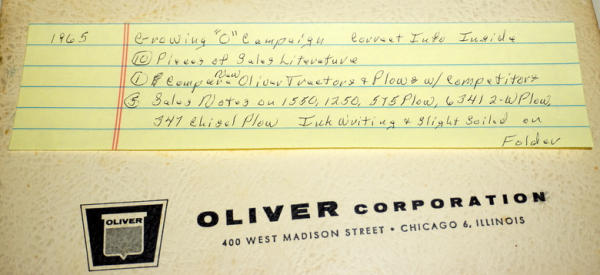 1965 Growing "O" Campaign Correct Info Inside
⑩ Pieces of Sales Literature
① Compare New Oliver Tractors & Plows w/ Competitors
③ Sales Notes on 1550, 1250, 575 Plow, 6341 2-W Plow,
347 Chisel Plow Ink Writing & Slight Soiled on
Folder
OLIVER
OLIVER CORPORATION
400 WEST MADISON STREET • CHICAGO 6, ILLINOIS